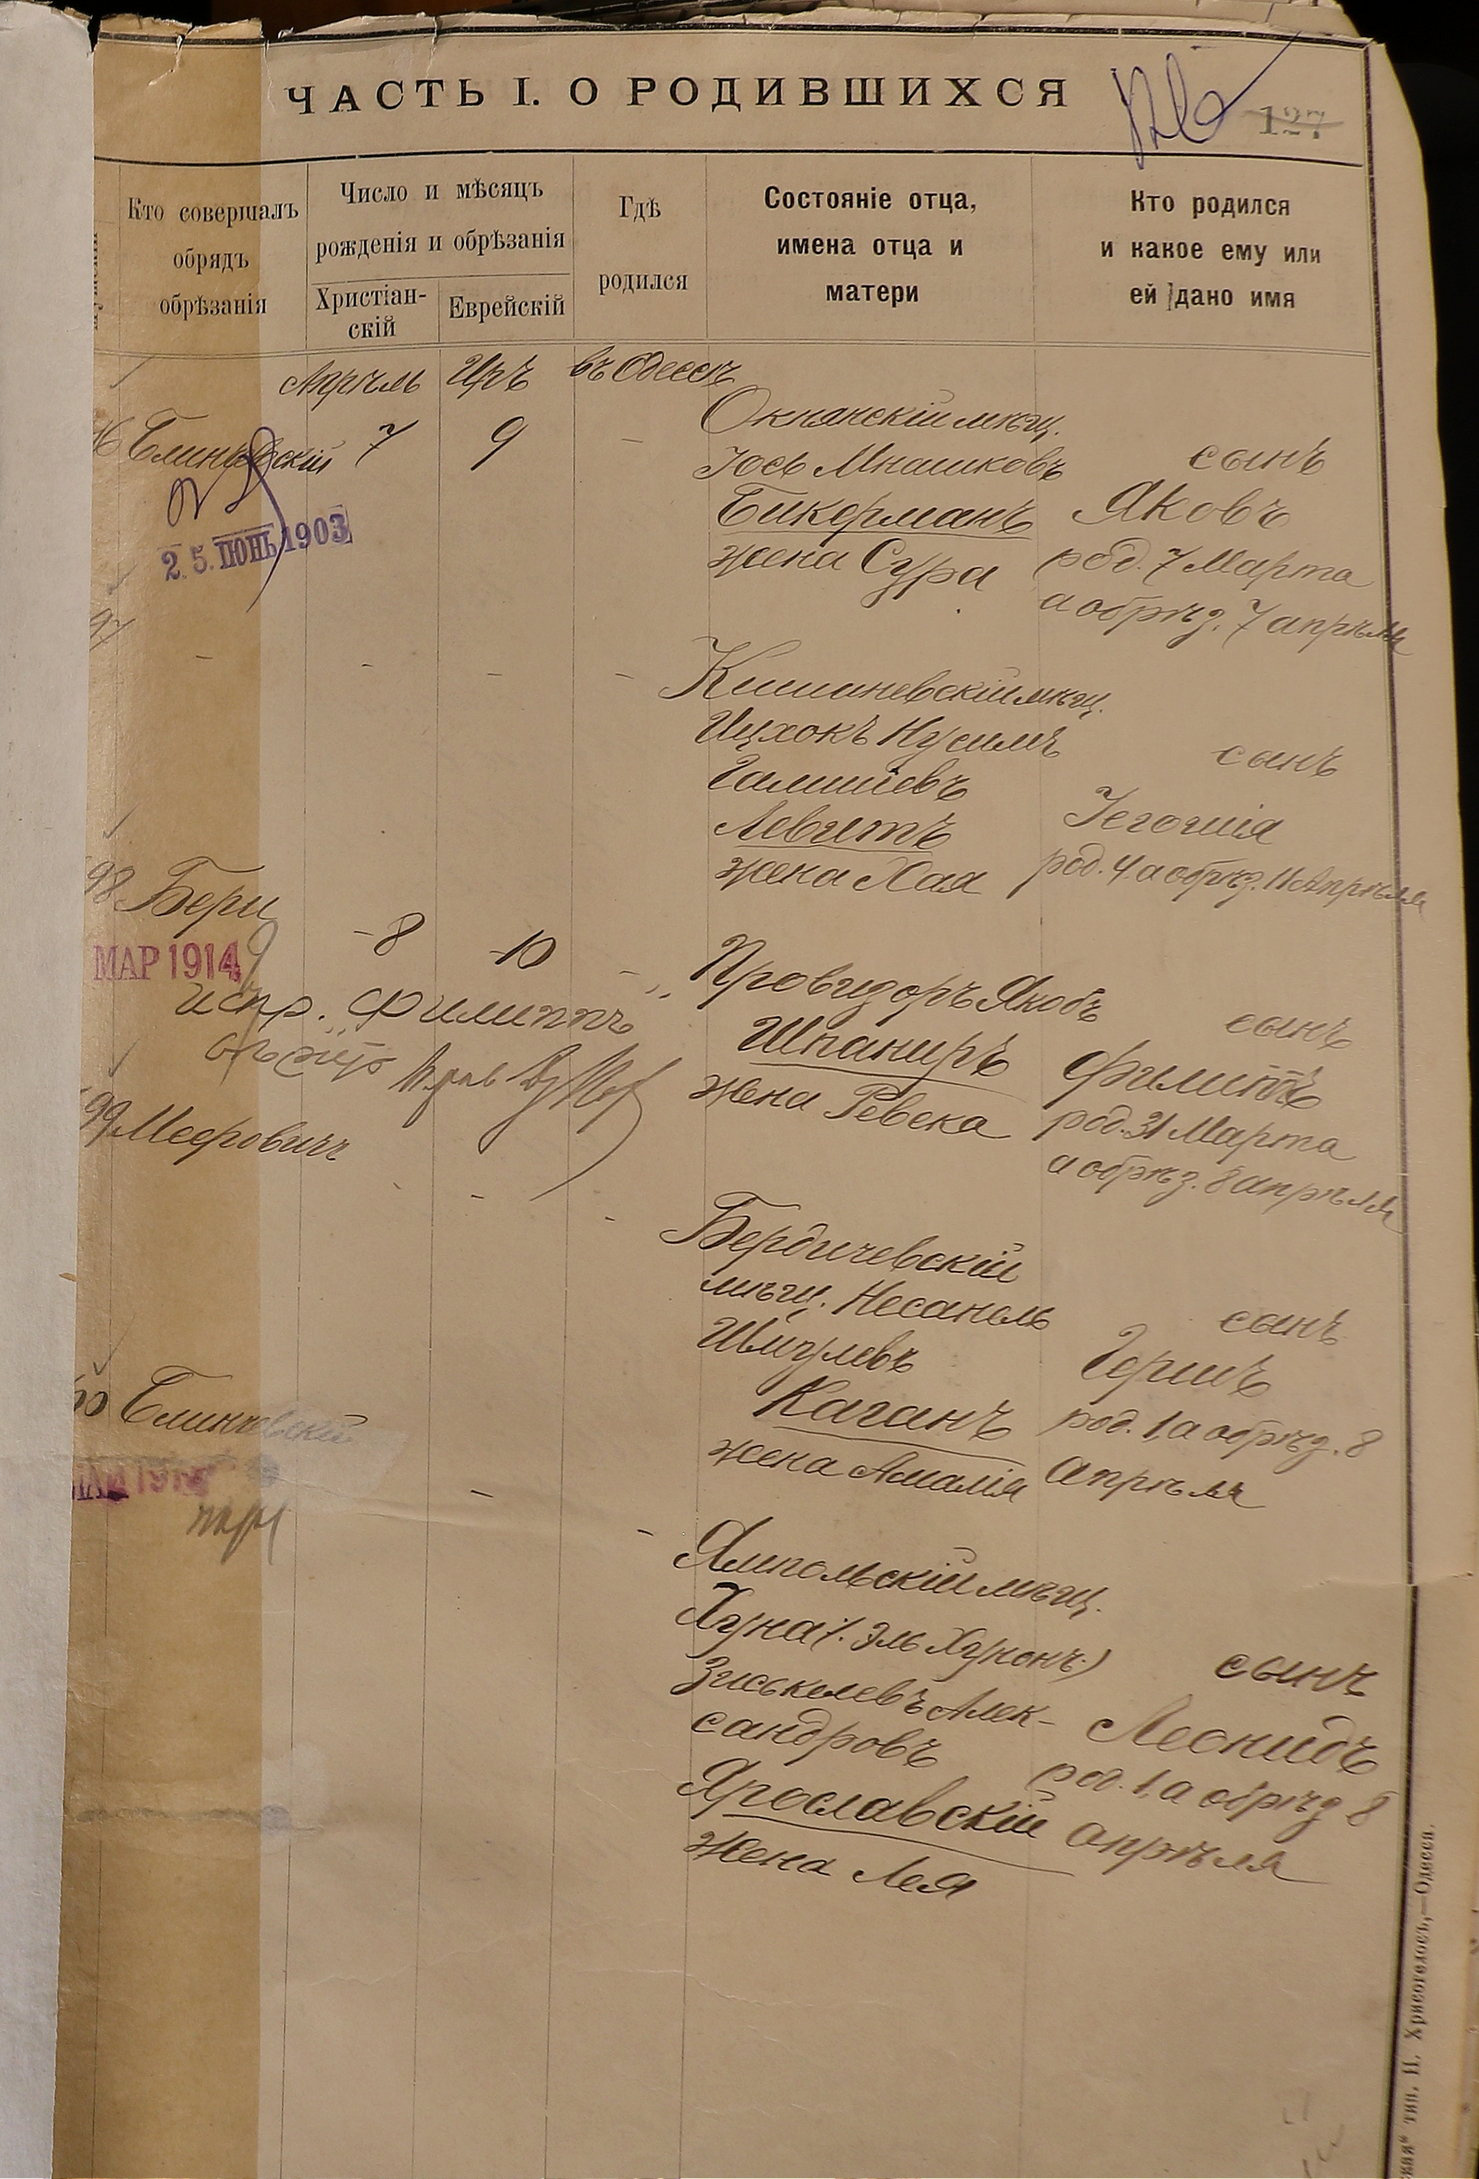 ЧАСТЬ I. О РОДИВШИХСЯ
127
Кто совершалъ
обрядъ
обрѣзанія
Число и мѣсяцъ
рожденія и обрѣзанія
Христіан-
скій
Еврейскій
Гдѣ
родился
Состояніе отца,
имена отца и
матери
Кто родился
и какое ему или
ей дано имя
Апрѣль Иръ въ Одессѣ
96 Блиндерскій 7 9 –
2.5. ІЮНЬ 1903
Окнянскій мѣщ.
Іось Мнашковъ
Бикерманъ
жена Сура
сынъ
Яковъ
род. 7 Марта
а обрѣз. 7 апрѣля
97 – – – –
Кишиневскій мѣщ.
Ицхокъ Нусимъ
Левитъ
жена Хая
сынъ
род. 4 а обрѣз. 11 Апрѣля
98 Бери – 8 – 10 –
МАР 1914
испр. Филиппъ
Провизоръ Якобъ
Шпаниръ
жена Ревека
сынъ
Филиппъ
род. 31 Марта
а обрѣз. 8 апрѣля
99 Мееровичъ - - -
Бердичевскій
мѣщ. Несанель
Шмулевъ
Каганъ
жена Амалія
сынъ
Гершъ
род. 1, а обрѣз. 8
апрѣля
Ямпольскій мѣщ.
Хуна (. Эль Хунонъ.)
Зиськелевъ Алек-
сандровъ
Ярославскій
жена Лея
сынъ
Леонидъ
род. 1, а обрѣз 8
апрѣля
тип. И. Хрисогелосъ,—Одесса.